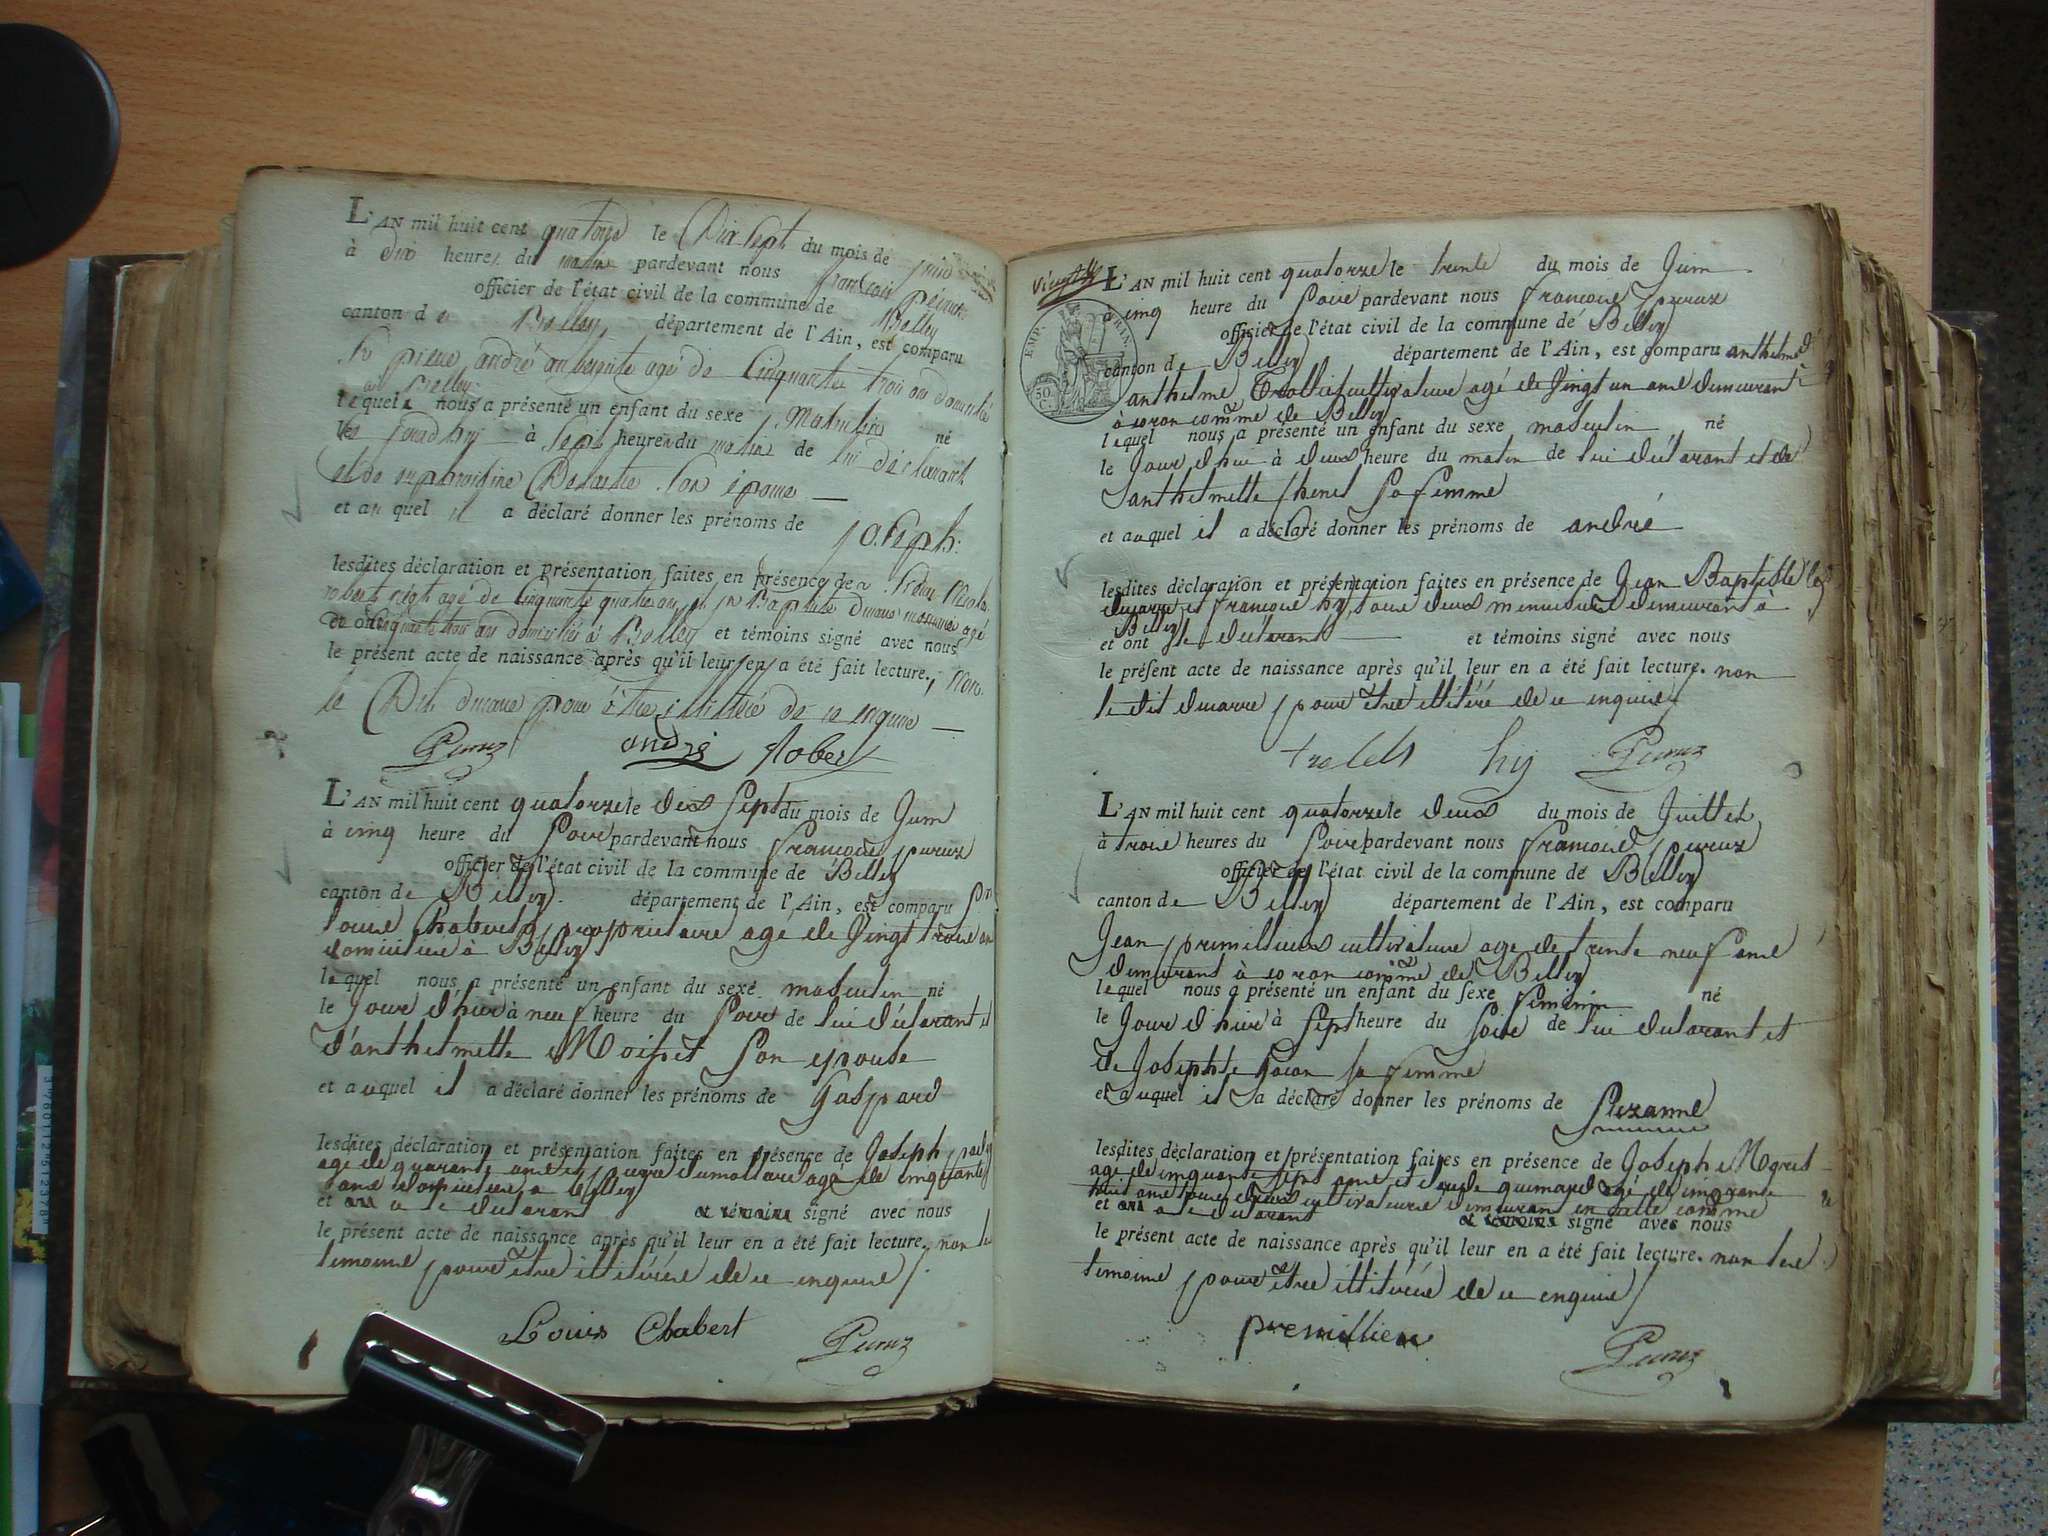 L'AN mil huit cent quatorze le Dix sept du mois de juin
à dix heures du matin pardevant nous françois Peruz
officier de l'état civil de la commune de Belley
canton de Belley, département de l'Ain, est comparu
Sr pierre andré agé de Cinquante trois ans
a Belley
lequel nous a présenté un enfant du sexe Masculin né
à Sept heures du matin de lui déclarant
et de son épouse
et au quel il a déclaré donner les prénoms de joseph.
lesdites déclaration et présentation faites en présence de
robert agé de Cinquante quatre ans et jn Baptiste
et ont domiciliés à Belley et témoins signé avec nous
le présent acte de naissance après qu'il leur en a été fait lecture, Non
le Dit pour être illitéré de ce enquis
Peruz andré Robert
L'AN mil huit cent quatorze le dix Sept du mois de Juin
à cinq heure du Soir pardevant nous francois peruz
officier de l'état civil de la commune de Belley
canton de Belley. département de l'Ain, est comparu Sr
Louis Chabert propriétaire agé de Vingt trois an
domicilié à Belley
lequel nous a présenté un enfant du sexe masculin né
le Jour d'hier à neuf heure du Soir de lui déclarant et
d'anthelmette Moiset Son epouse
et auquel il a déclaré donner les prénoms de Gaspard
lesdites déclaration et présentation faites en présence de Joseph
agé de quarante ans et pierre dumollard agé de cinquante
ans domiciliés a Belley
et a le déclarant signé avec nous
le présent acte de naissance après qu'il leur en a été fait lecture, non les
temoins pour être illitérés de ce enquis /.
Louis Chabert Peruz
EMP.
50 C.
L'AN mil huit cent quatorze le trente du mois de Juin
à cinq heure du Soir pardevant nous francois peruz
officier de l'état civil de la commune de Belley
canton de Belley département de l'Ain, est comparu
anthelme cultivateur agé de Vingt un ans demeurant
à coron comme de Belley
lequel nous a présenté un enfant du sexe masculin né
le Jour d'hui à deux heure du matin de lui déclarant et de
anthelmette Sa femme
et auquel il a déclaré donner les prénoms de andré
lesdites déclaration et présentation faites en présence de Jean Baptiste
ducarre et francois hy, tous deux demeurant à
Belley
et ont le déclarant et témoins signé avec nous
le présent acte de naissance après qu'il leur en a été fait lecture. non
le dit ducarre pour être illitéré de ce enquis
hy Peruz
L'AN mil huit cent quatorze le deux du mois de Juillet
à trois heures du Soir pardevant nous francois peruz
officier de l'état civil de la commune de Belley
canton de Belley département de l'Ain, est comparu
Jean premillieux cultivateur agé de trente neuf ans
demeurant à coron comme de Belley
lequel nous a présenté un enfant du sexe feminin né
le Jour d'hier à Sept heure du Soir de lui déclarant et
de Josephte Sa femme
et auquel il a déclaré donner les prénoms de Suzanne
lesdites déclaration et présentation faites en présence de Joseph
agé de cinquante Sept ans et agé de cinquante
huit ans tous deux cultivateurs demeurant en cette comme
et a le déclarant signé avec nous
le présent acte de naissance après qu'il leur en a été fait lecture. non les
temoins pour être illitérés de ce enquis /
premillieu Peruz